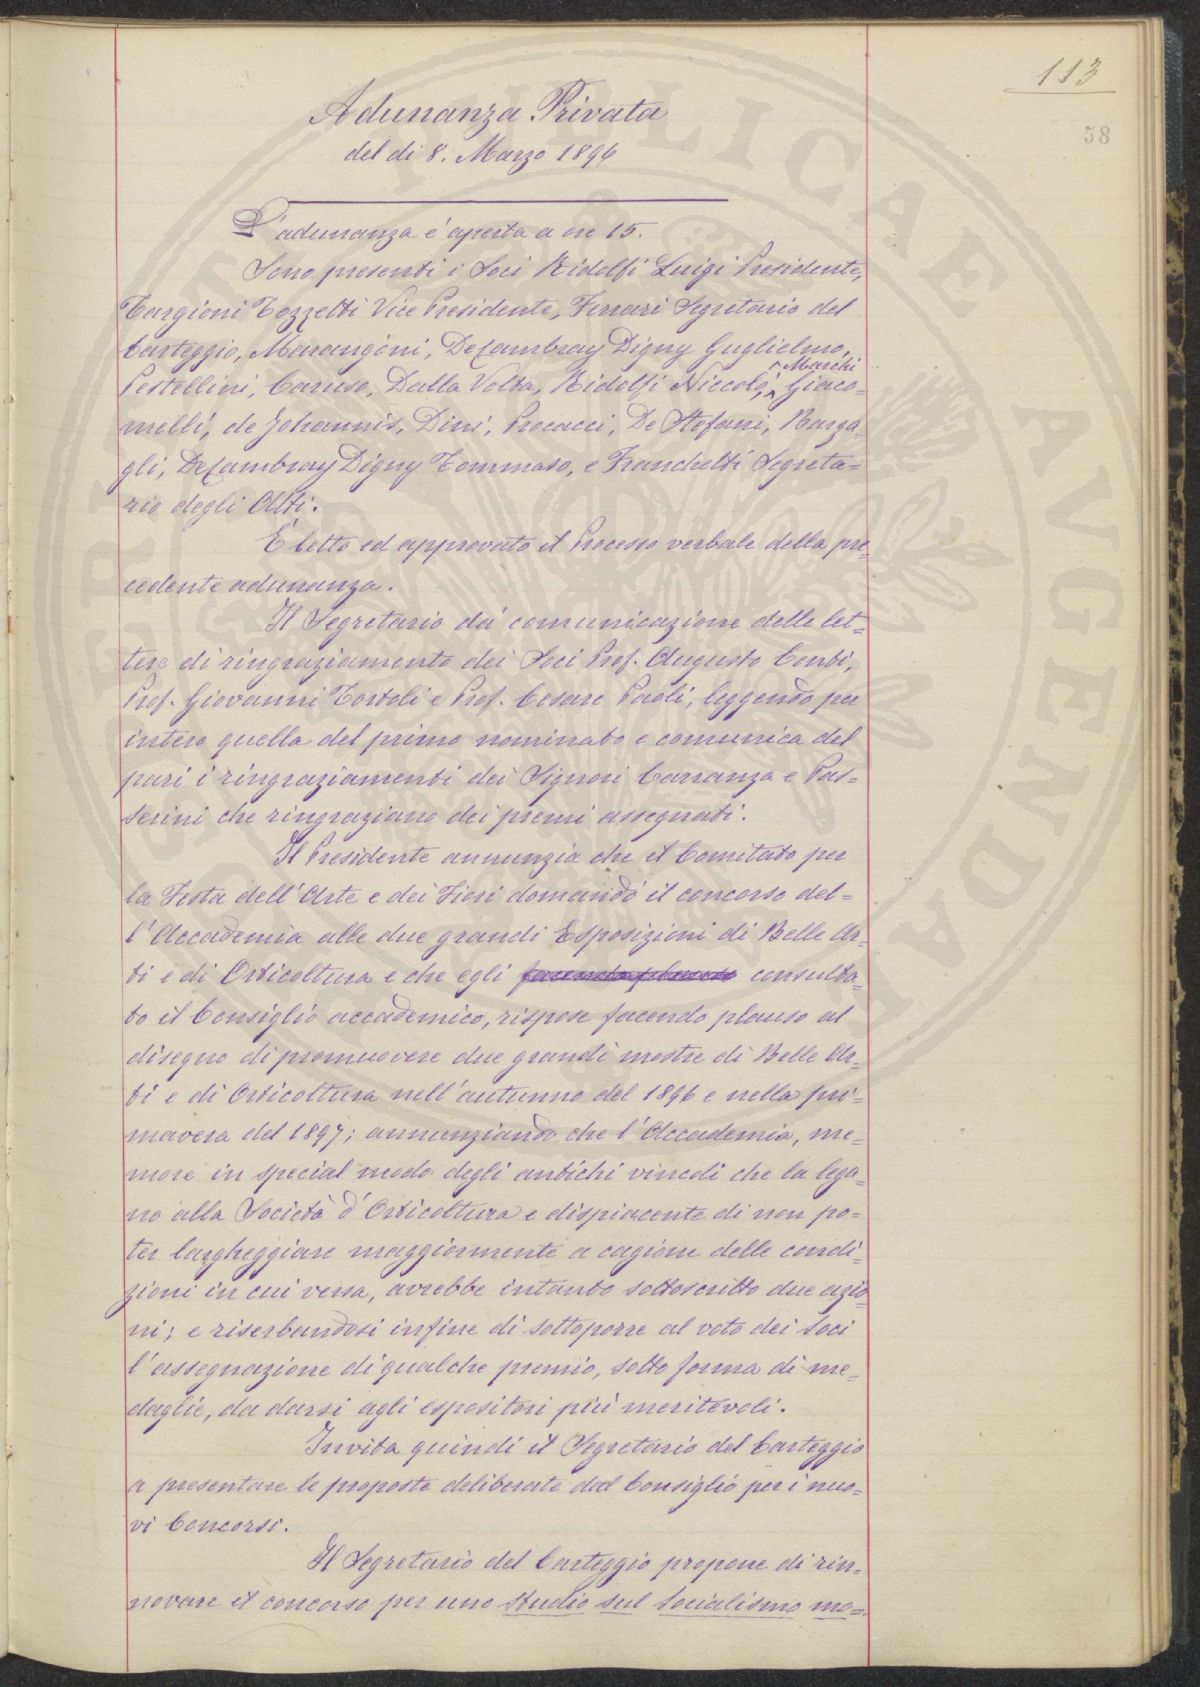 113
58
Adunanza Privata
del di 8. Marzo 1896
L'adunanza é aperta a ore 15.
Sono presenti i Soci Ridolfi Luigi Presidente,
Targioni Tozzetti Vice Presidente, Ferrari Segretario del
Carteggio, Marangoni, De Cambray Digny Guglielmo,
Pestellini, Caruso, Dalla Volta, Ridolfi Niccoló, Marchi Giaco=
melli, de Johannis, Dini, Procacci, De Stefani, Barga=
gli, De Cambray Digny Tommaso, e Franchetti Segreta=
rio degli Atti.
É letto ed approvato il Processo verbale della pre=
cedente adunanza.
Il Segretario dá comunicazione delle let=
tere di ringraziamento dei Soci Prof. Augusto Conti,
Prof. Giovanni Tortoli e Prof. Cesare Paoli, leggendo per
intero quella del primo nominato e comunica del
pari i ringraziamenti dei Signori Carranza e Pas=
serini che ringraziano dei premi assegnati.
Il Presidente annunzia che il Comitato per
la Festa dell'Arte e dei Fiori domandó il concorso del=
l'Accademia alle due grandi Esposizioni di Belle Ar=
ti e di Orticoltura e che egli facendo plauso consulta=
to il Consiglio accademico, rispose facendo plauso al
disegno di promuovere due grandi mostre di Belle Ar=
ti e di Orticoltura nell'autunno del 1896 e nella pri=
mavera del 1897; annunziando che l'Accademia, me=
more in special modo degli antichi vincoli che la lega=
no alla Società d'Orticoltura e dispiacente di non po=
ter largheggiare maggiormente a cagione delle condi=
zioni in cui versa, avrebbe intanto sottoscritto due azio=
ni; e riserbandosi infine di sottoporre al voto dei Soci
l'assegnazione di qualche premio, sotto forma di me=
daglie, da darsi agli espositori piú meritevoli.
Invita quindi il Segretario del Carteggio
a presentare le proposte deliberate dal Consiglio per i nuo=
vi Concorsi.
Il Segretario del Carteggio propone di rin=
novare il concorso per uno studio sul Socialismo mo=